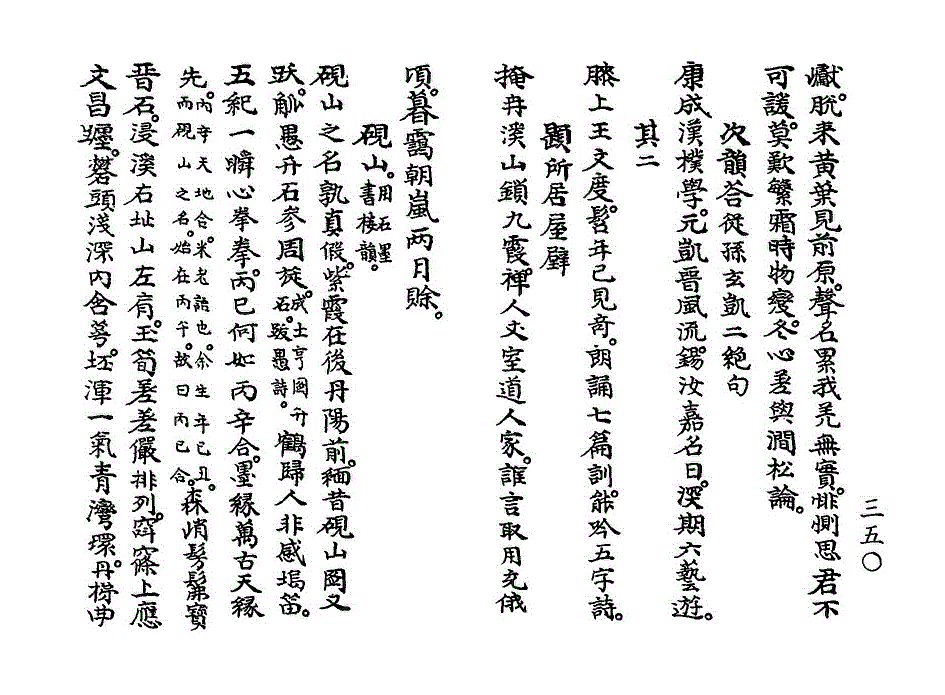 三五〇
巘脫來黃葉見前原。聲名累我羌無實。悱惻思君不
可諼。莫歎繁霜時物變。冬心差與澗松論。
次韻答從孫玄凱二絶句
康成漢樸學。元凱晋風流。錫汝嘉名日。深期六藝遊。
其二
膝上王文度。髫年已見奇。朗誦七篇訓。能吟五字詩。
題所居屋壁
掩冉溪山鎖九霞。禪人丈室道人家。誰言取用充俄
頃。暮靄朝嵐兩月賒。
硯山。用石墨書楼韻。
硯山之名孰真假。紫霞在後丹陽前。緬昔硯山圖又
跃。觚愚升石參周旋。戍士亨圖升石。跋愚詩。鶴歸人非感塢笛。
五紀一瞬心拳拳。丙巳何如丙辛合。墨緣萬古天緣
先。丙辛天地合。米老語也。余生年已丑。而硯山之名。始在丙午。故曰丙巳合。森峭髣髴寶
晋石。浸溪右址山左肩。玉筍差差儼排列。窅窱上應
文昌躔。礬頭淺深內含萼。坯渾一氣青灣環。丹榜曲